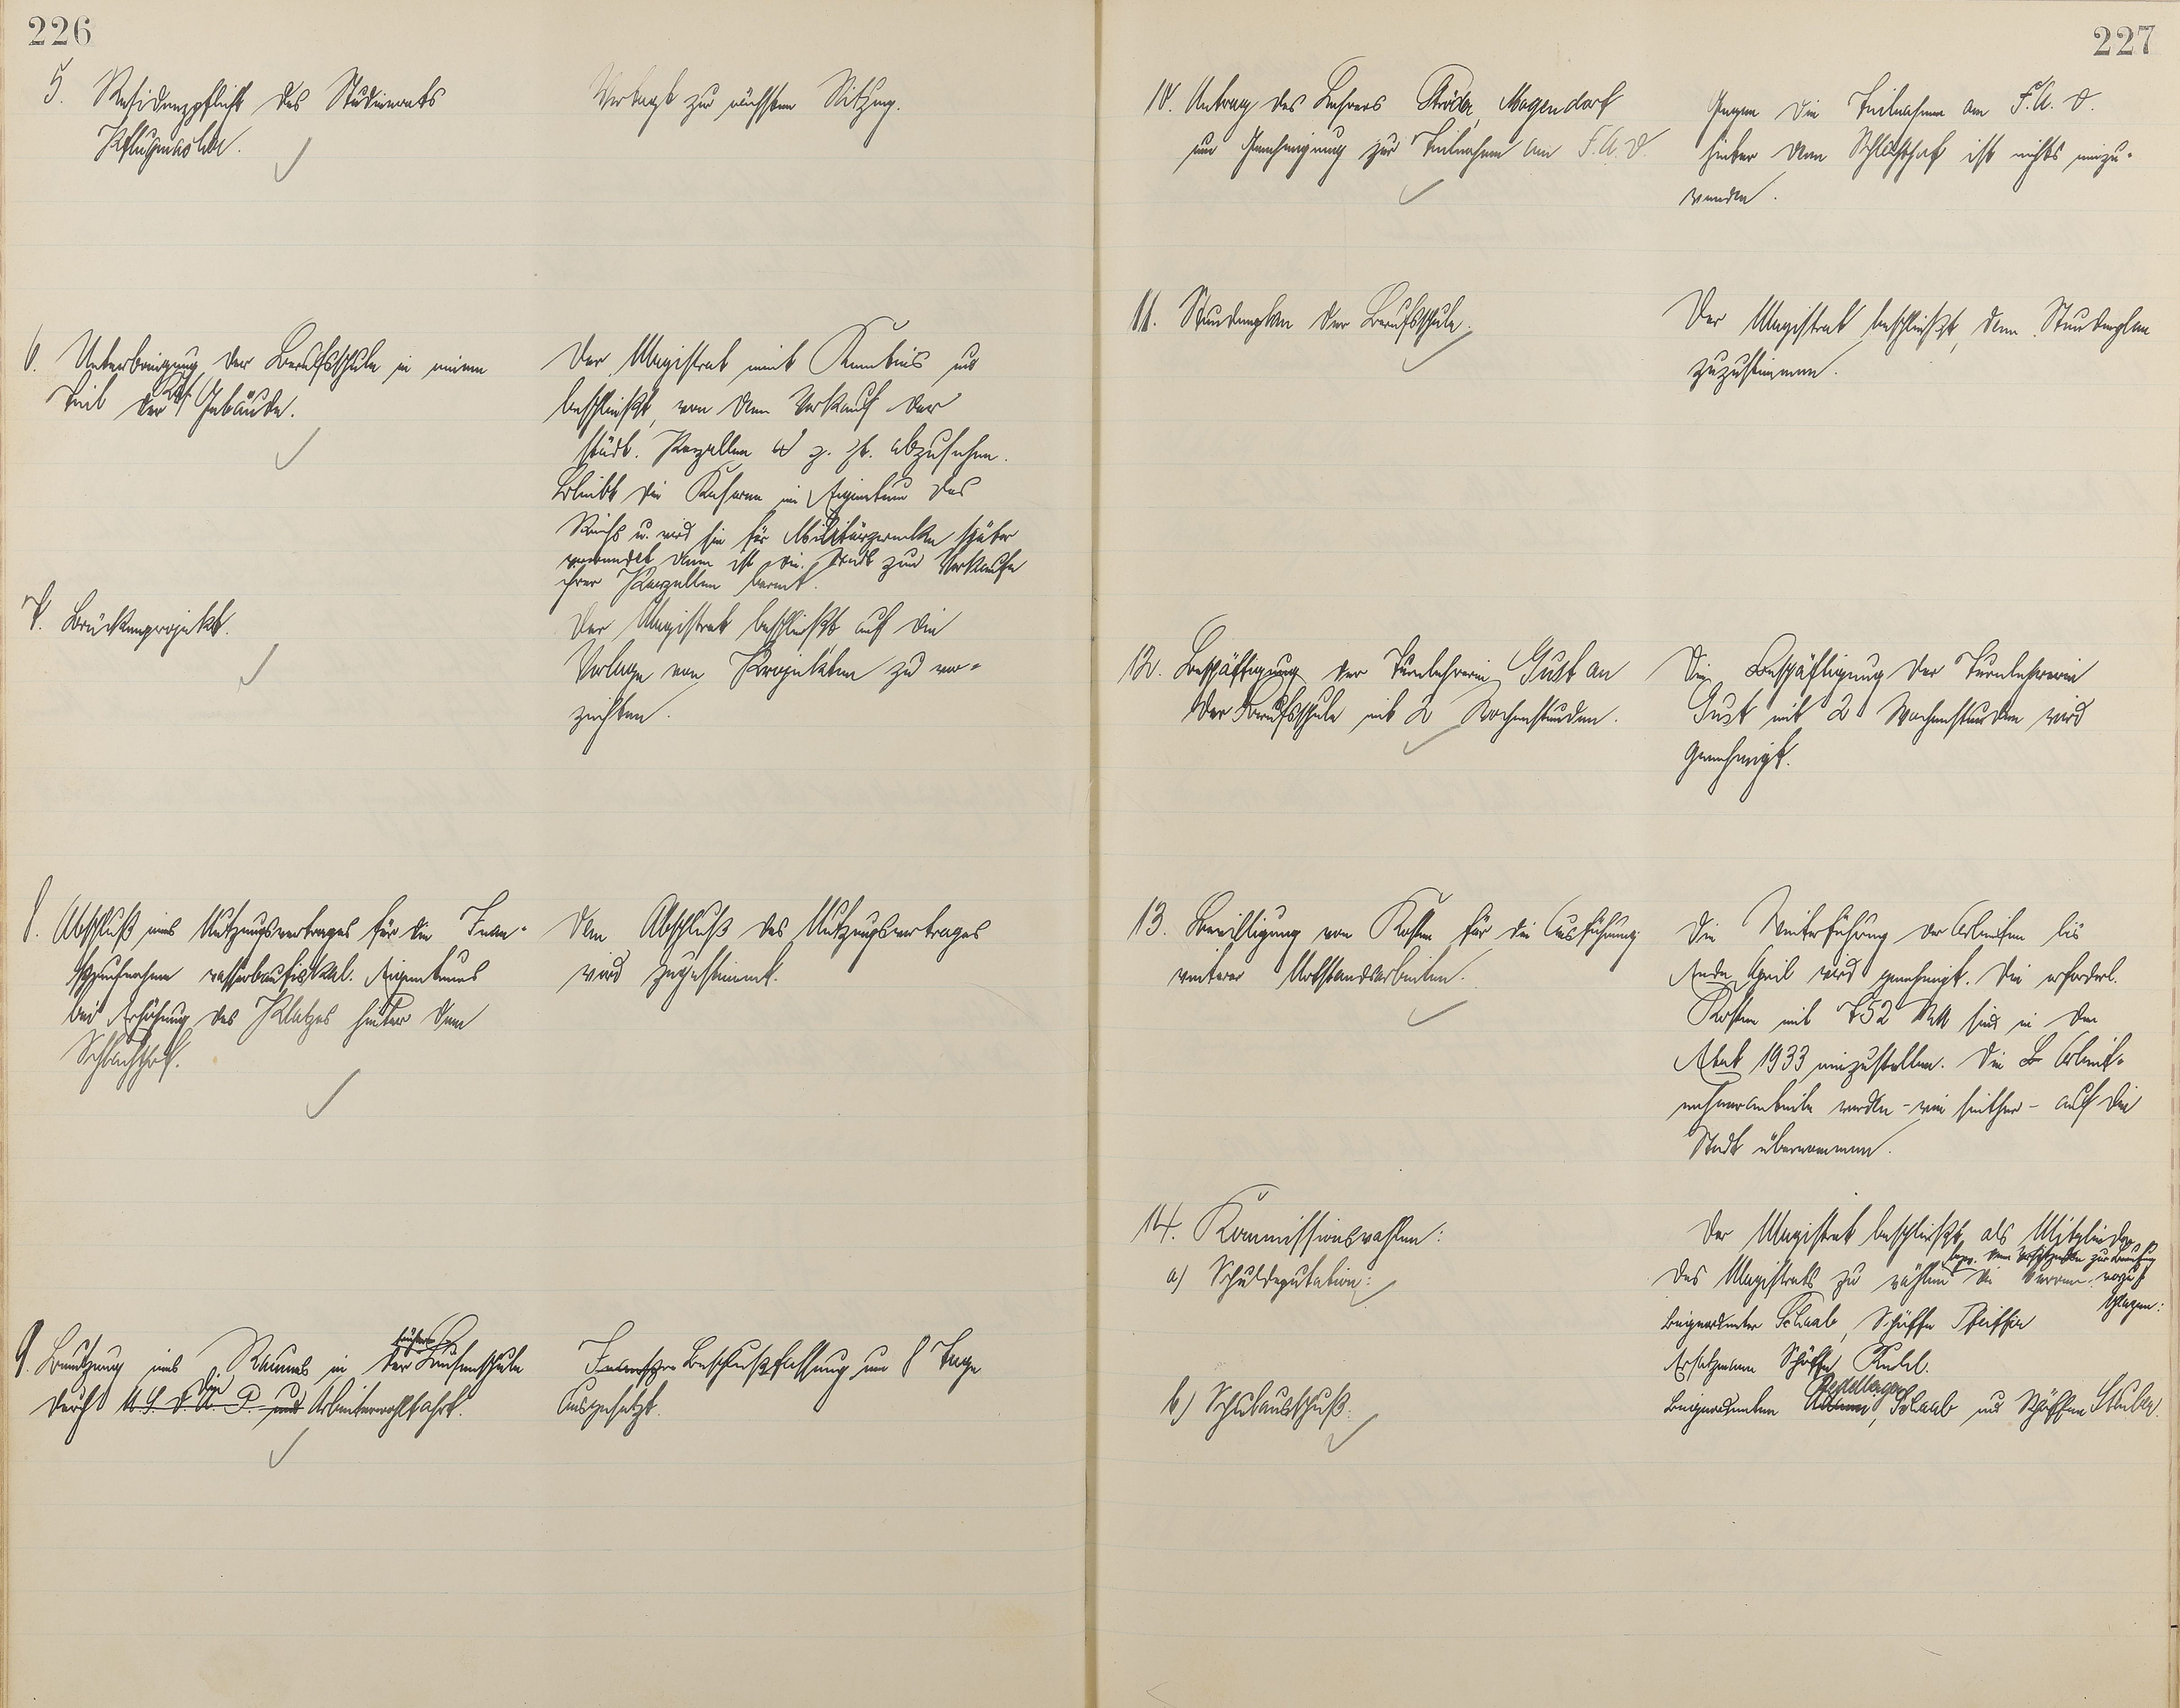 226
5. Residenzpflicht des Studienrats
Pflugmacher.
Vertagt zur nächsten Sitzung.
6. Unterbringung der Berufsschule in einem
Teil der Gebäude.
Der Magistrat nimmt Kenntnis und
beschließt, von dem Verkauf der
städt. Parzellen z. Zt. abzusehen.
Bleibt die Kaserne im Eigentum des
Reichs u. wird sie für Militärzwecke später
verwendet, dann ist die Stadt zum Verkaufe
ihrer Parzellen bereit.
7. Brückenprojekt.
Der Magistrat beschließt auf die
Vorlage von Projekten zu ver-
zichten.
8. Abschluß eines Nutzungsvertrages für die Inan-
spruchnahme wasserbaufiskal. Eigentums
bei Erhöhung des Platzes hinter dem
Schlachthof.
Dem Abschluß des Nutzungsvertrages
wird zugestimmt.
9. Benutzung eines Raumes in der früheren Hufenschule
durch N.S.D.A.P. und die Arbeiterwohlfahrt.
Beschlußfassung um 8 Tage
ausgesetzt.
227
10. Antrag des Lehrers Ströder, Mogendorf
um Genehmigung zur Teilnahme am F.A.D.
Gegen die Teilnahme am F.A.D.
hinter dem Schlachthof ist nichts einzu-
wenden.
11. Stundenplan der Berufsschule.
Der Magistrat beschließt, dem Stundenplan
zuzustimmen.
12. Beschäftigung der Turnlehrerin Gust an
der Berufsschule mit 2 Wochenstunden.
Die Beschäftigung der Turnlehrerin
Gust mit 2 Wochenstunden wird
genehmigt.
13. Bewilligung von Kosten für die Ausführung
weiterer Notstandsarbeiten.
Die Weiterführung der Arbeiten bis
Ende April wird genehmigt. Die erforderl.
Kosten mit 752 RM sind in den
Etat 1933 einzustellen. Die Arbeit-
nehmeranteile werden - wie seither - auf die
Stadt übernommen.
14. Kommissionswahlen:
a) Schuldeputation:
Der Magistrat beschließt, als Mitglieder
bezw. dem Vorsitzenden zur Berufung
des Magistrats zu wählen vorzu
schlagen:
Beigeordneter Schaab, Schöffe Pfeiffer
Ersatzmann Schöffe Kuhl.
b) Schulausschuß:
Beigeordneten Schaab und Schöffen Stuber.